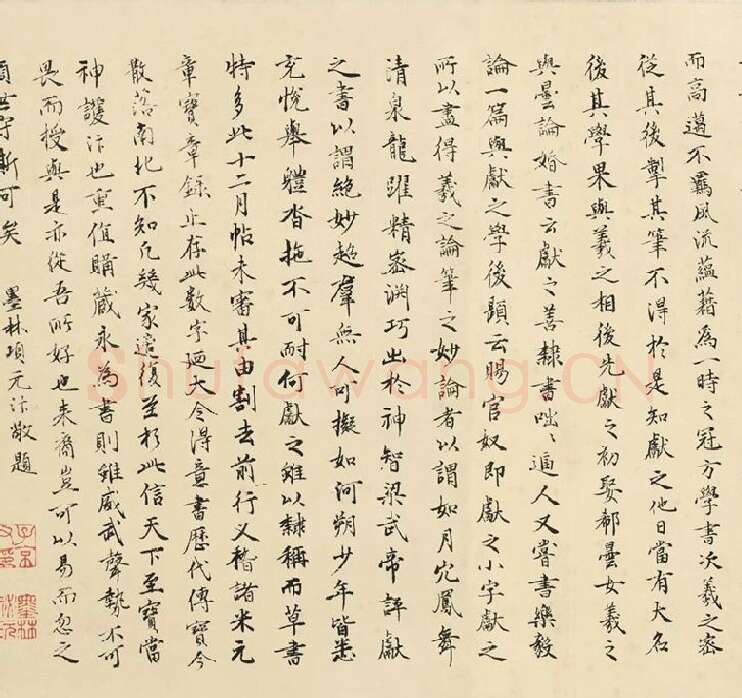 而高邁不羈風流蘊藉為一時之冠方學書次羲之密
從其後掣其筆不得於是知獻之他日當有大名
後其學果與羲之相後先獻之初娶郗曇女羲之
與曇論婚書云獻之善隸書咄〻逼人又嘗書樂毅
論一篇與獻之學後題云賜官奴即獻之小字獻之
所以盡得羲之論筆之妙論者以謂如丹穴鳳舞
清泉龍躍精密淵巧出於神智梁武帝評獻
之書以謂絕妙超羣無人可擬如河朔少年皆悉
充悅舉體沓拖不可耐何獻之雖以隸稱而草書
特多此十二月帖未審其由割去前行又稽諸米元
章寶章錄止存此數字廼大令得意書歷代傳寶今
散落南北不知凡幾家迨復至於此信天下至寶當
神護汴也重值購藏永為書則雖威武聲勢不可
畏而授與是亦從吾所好也來裔豈可以易而忽之
世守斯可矣 墨林項元汴敬題
子京父印
墨林秘玩
Shufawang.CN